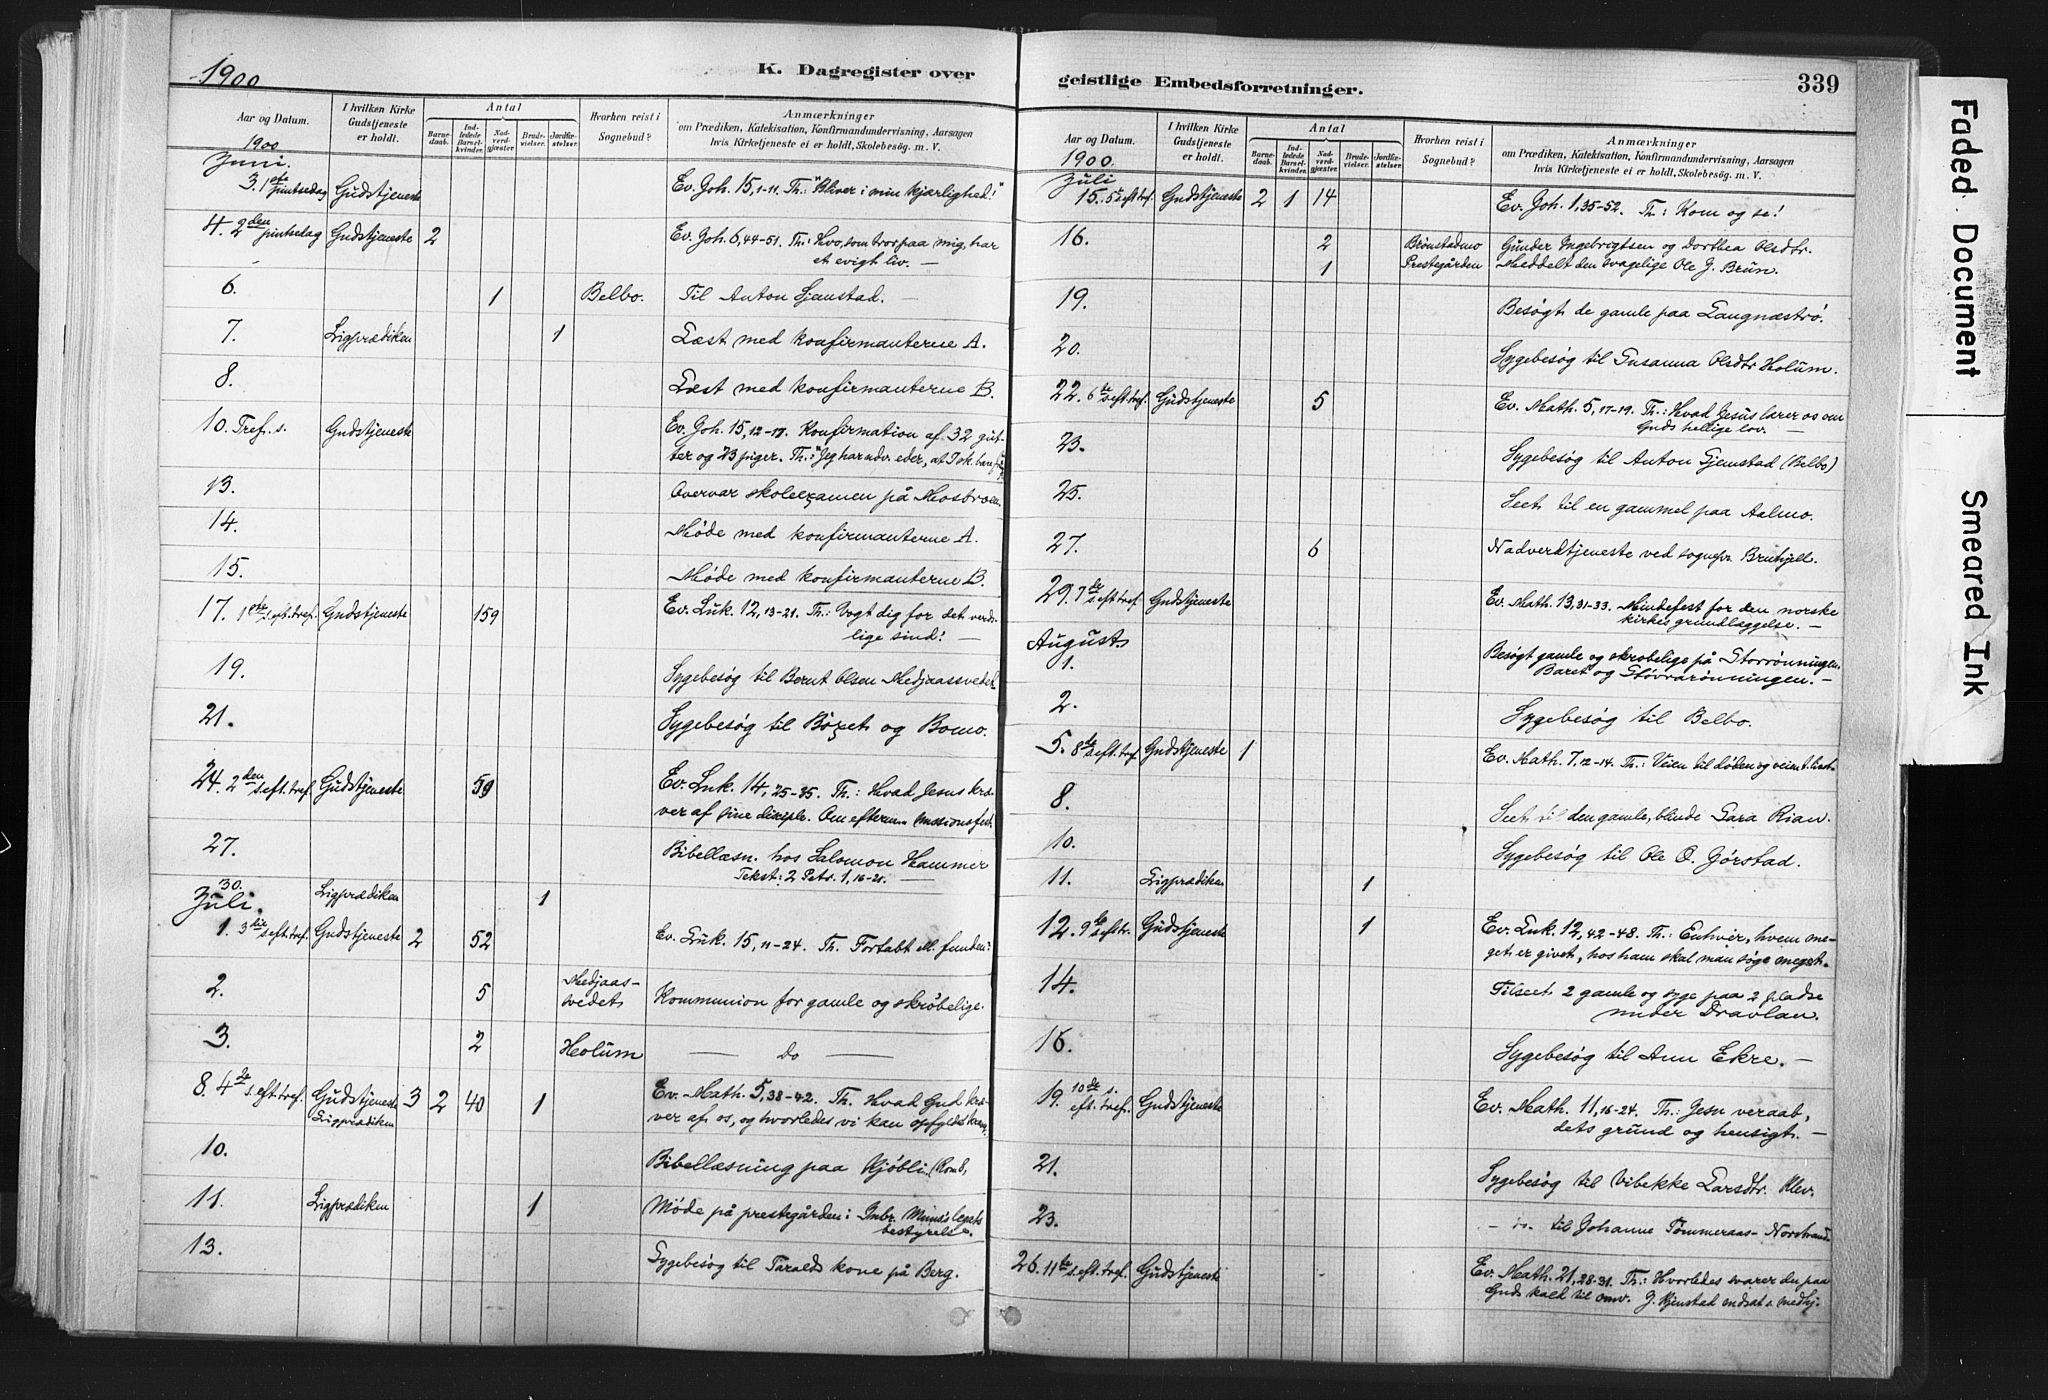 1900
K. Dagregister over
Aar og Datum.
I hvilken Kirke Gudstjeneste er holdt.
Antal
Barnedaab.
Indledede Barselkvinder.
Nadverdgjæster
Brudevielser.
Jordfæstelser.
Hvorhen reist i Sognebud?
Anmærkninger
om Prædiken, Katekisation, Konfirmandundervisning, Aarsagen
hvis Kirketjeneste ei er holdt, Skolebesøg. m. V.
1900
Juni.
3. 1ste pintsedag Gudstjeneste Ev. Joh. 15, 1-11. Th.: "Bliver i min kjærlighed!"
4. 2den pintsedag Gudstjeneste 2 Ev. Joh. 6, 44-51. Th.: Hvo, som tror paa mig, har
et evigt liv. —
6. 1 Belbo. Til Anton Gjemstad. —
7. Ligprædiken 1 Læst med konfirmanterne A.
8. Læst med konfirmanterne B.
10. Tref. s. Gudstjeneste Ev. Joh. 15, 12-17. Konfirmation af 32 gut-
ter og 23 piger. Th.: "Jeg har udv. eder, at I sk. bære
13. Overvar skoleexamen på Mosbroen.
14. Møde med konfirmanterne A.
15. Møde med konfirmanterne B.
17. 1ste s. eft. tref. Gudstjeneste 159 Ev. Luk. 12, 13-21. Th.: Vogt dig for det verds-
lige sind! —
19. Sygebesøg til Bernt Olsen Medjaasvedet
21. Sygebesøg til Bözet og Bomo.
24. 2den s. eft. tref. Gudstjeneste 59 Ev. Luk. 14, 25-35. Th.: Hvad Jesus kræ-
ver af sine disciple. Om efterm. missionsfest.
27. Bibellæsn. hos Salomon Hammer
Tekst: 2 Petr. 1, 16-21. —
30. Ligprædiken 1
Juli.
1. 3die s. eft. tref. Gudstjeneste 2 52 Ev. Luk. 15, 11-24. Th. Fortabt ell. funden?
2. 5 Medjaas-
vedet Kommunion for gamle og skrøbelige.
3. 2 Holum — do —
8. 4de s. eft. tref. Gudstjeneste 3 2 40 1 Ev. Math. 5, 38-42. Th. Hvad Gud kræ-
Ligprædiken ver af os, og hvorledes vi kan opfylde krav.
10. Bibellæsning paa Kjöbli (Rom 8,
11. Ligprædiken 1 Møde på prestegården: Inbr. Muus's legats
bestyrelse.
13. Sygebesøg til Taralds kone på Berg.
geistlige Embedsforretninger.
339
Aar og Datum.
I hvilken Kirke Gudstjeneste er holdt.
Antal
Barnedaab.
Indledede Barselkvinder.
Nadverdgjæster.
Brudevielser.
Jordfæstelser.
Hvorhen reist i Sognebud?
Anmærkninger
om Prædiken, Katekisation, Konfirmandundervisning, Aarsagen
hvis Kirketjeneste ei er holdt, Skolebesøg. m. V.
1900.
Juli
15. 5te s. eft tref. Gudstjeneste 2 1 14 Ev. Joh. 1, 35-52. Th.: Kom og se!
16. 2 Brønstadmo Gunder Ingebrigtsen og Dorthea Olsdtr.
1 Prestegården Meddelt den svagelige Ole J. Brun.
19. Besøgt de gamle paa Langnæstrø.
20. Sygebesøg til Susanna Olsdtr Holum.
22. 6te s. eft. tref. Gudstjeneste 5 Ev. Math. 5, 17-19. Th.: Hvad Jesus lærer os om
Guds hellige lov. —
23. Sygebesøg til Anton Gjemstad (Belbo)
25. Seet til en gammel paa Aalmo.
27. 6 Nadverdtjeneste ved sognepr. Bruhjell.
29. 7de s. eft. tref. Gudstjeneste Ev. Math. 13, 31-33. Mindefest for den norske
kirkes grundlæggelse. —
August
1. Besøgt gamle og skrøbelige på Storrønningen,
Baret og Stövrarönningen. —
2. Sygebesøg til Belbo.
5. 8de s. eft. tref. Gudstjeneste 1 Ev. Math. 7, 12-14. Th.: Veien til døden og veien t. livet.
8. Seet til den gamle, blinde Sara Rian.
10. Sygebesøg til Ole O. Gørstad.
11. Ligprædiken 1
12. 9de s. eft tr. Gudstjeneste 1 Ev. Luk. 12, 42-48. Th.: Enhver, hvem me-
get er givet, hos ham skal man søge meget.
14. Tilseet 2 gamle og syge paa 2 pladse
under Dravlan.
16. Sygebesøg til Ann Ekre. —
19. 10de s. eft. tref. Gudstjeneste Ev. Math. 11, 16-24. Th.: Jesu veraab,
dets grund og hensigt. —
21. Sygebesøg til Vibekke Larsdtr. Klev.
23. — do. til Johanne Tømmeraas- Norstrand
26. 11te s. eft. tref. Gudstjeneste Ev. Math. 21, 28-31. Th.: Hvorledes svarer du paa
Guds kald til omv. J. Kjenstad endsat s. medhj.
Faded Document
Smeared Ink